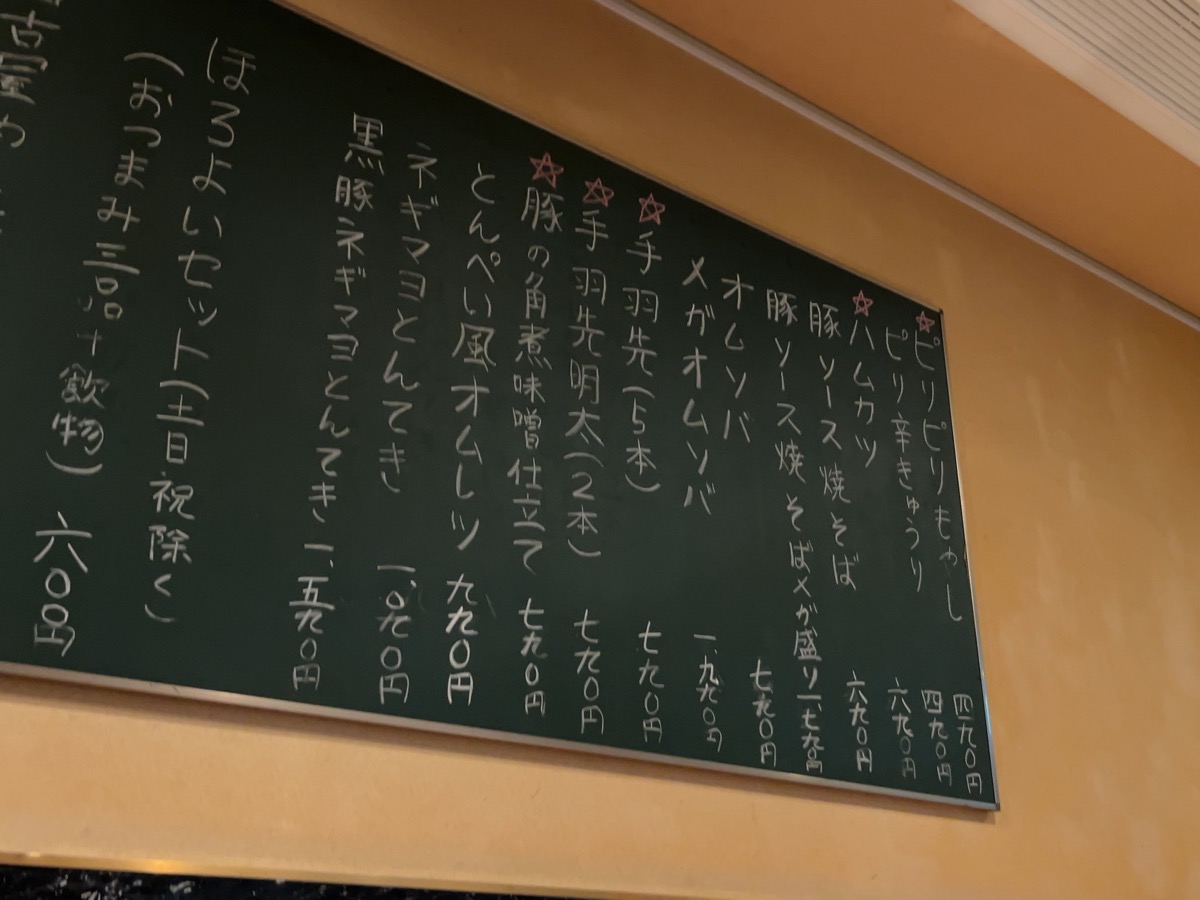 ☆ピリピリもやし 四九〇円
ピリ辛きゅうり 四九〇円
☆ハムカツ 六九〇円
豚ソース焼そば 六九〇円
豚ソース焼そばメガ盛り 一、七九〇円
オムソバ 七九〇円
メガオムソバ 一、九九〇円
☆手羽先(5本) 七九〇円
☆手羽先明太(2本) 七九〇円
☆豚の角煮味噌仕立て 七九〇円
とんぺい風オムレツ 九九〇円
ネギマヨとんてき 一、〇九〇円
黒豚ネギマヨとんてき 一、五九〇円
ほろよいセット(土日祝除く)
(おつまみ三品+飲物) 六〇〇円
古屋